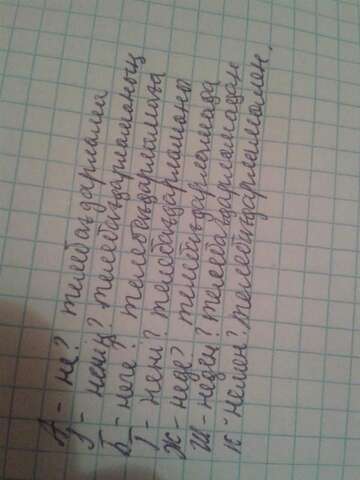 А - не? телебағдарлама
І - ненің? телебағдарламаның
Б - неге? телебағдарламаға
Т - нені? телебағдарламаны
Ж - неде? телебағдарламада
Ш - неден? телебағдарламадан
К - немен? телебағдарламамен.